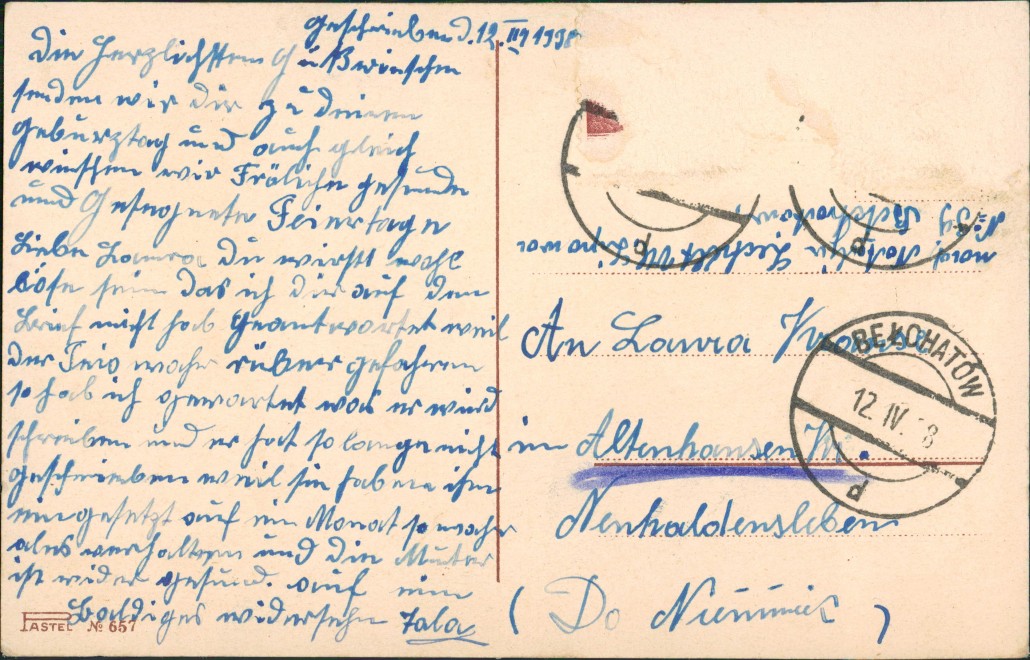 geschrieben d. 12 IV 1938
Die Herzlichsten Glükwinsche
senden wir dir zu deinen
geburztag und auch gleich
winschen wir Fröliche gesunde
und Gesegnete Feiertage
Liebe Laura Du wirst wohl
böse sein das ich dir auf den
brief nicht hab geantwortet weil
der rüber gefahren
so hab ich gewartet was er wird
schreiben und er hat so lange nicht
geschrieben weil sie haben ihn
eingesetzt auf ein Monat so wahr
ales verhalten und die Mutter
ist wider gesund. auf ein
Baldiges widersehn Tala
PASTEL № 657
An Laura
in Altenhausen Kr.
Neuhaldensleben
(Do Niemiec)
BEŁCHATÓW
12.IV. 8
d
d
d